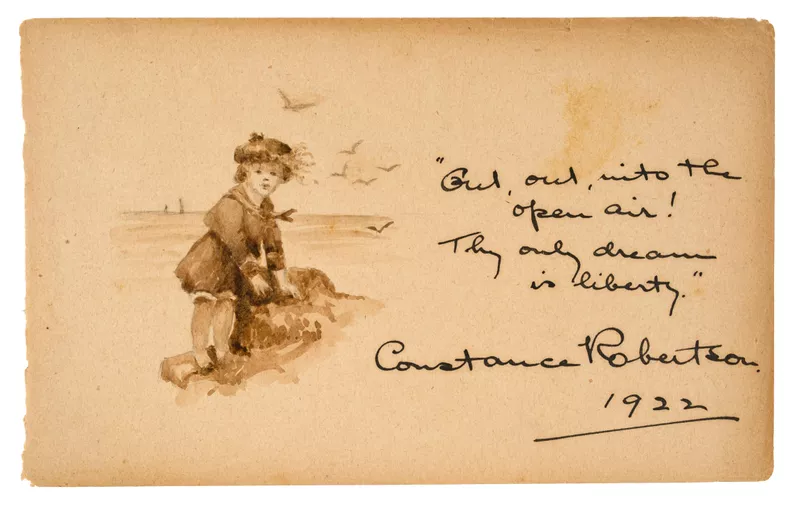 "Out, out, into the
open air!
Thy only dream
is liberty."
Constance Robertson.
1922